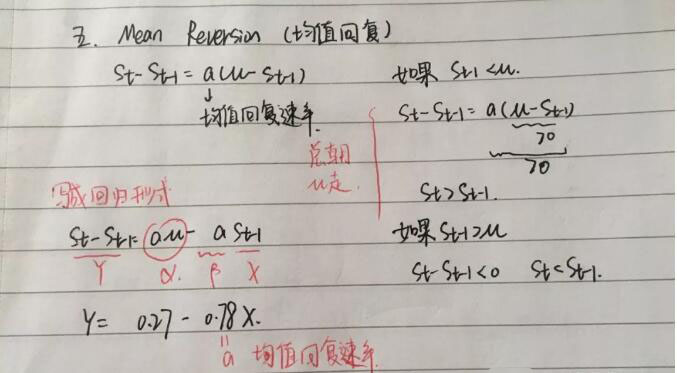 五. Mean Reversion (均值回复)
St-St-1 = a(μ-St-1)
↓
均值回复速率.
写成回归形式
St-St-1= aμ- a St-1
Y α. β X
Y= 0.27 - 0.78X.
a 均值回复速率.
如果 St-1<μ.
St-St-1= a(μ-St-1)
>0
>0
St>St-1.
总朝
μ走.
如果St-1>μ
St-St-1<0 St<St-1.